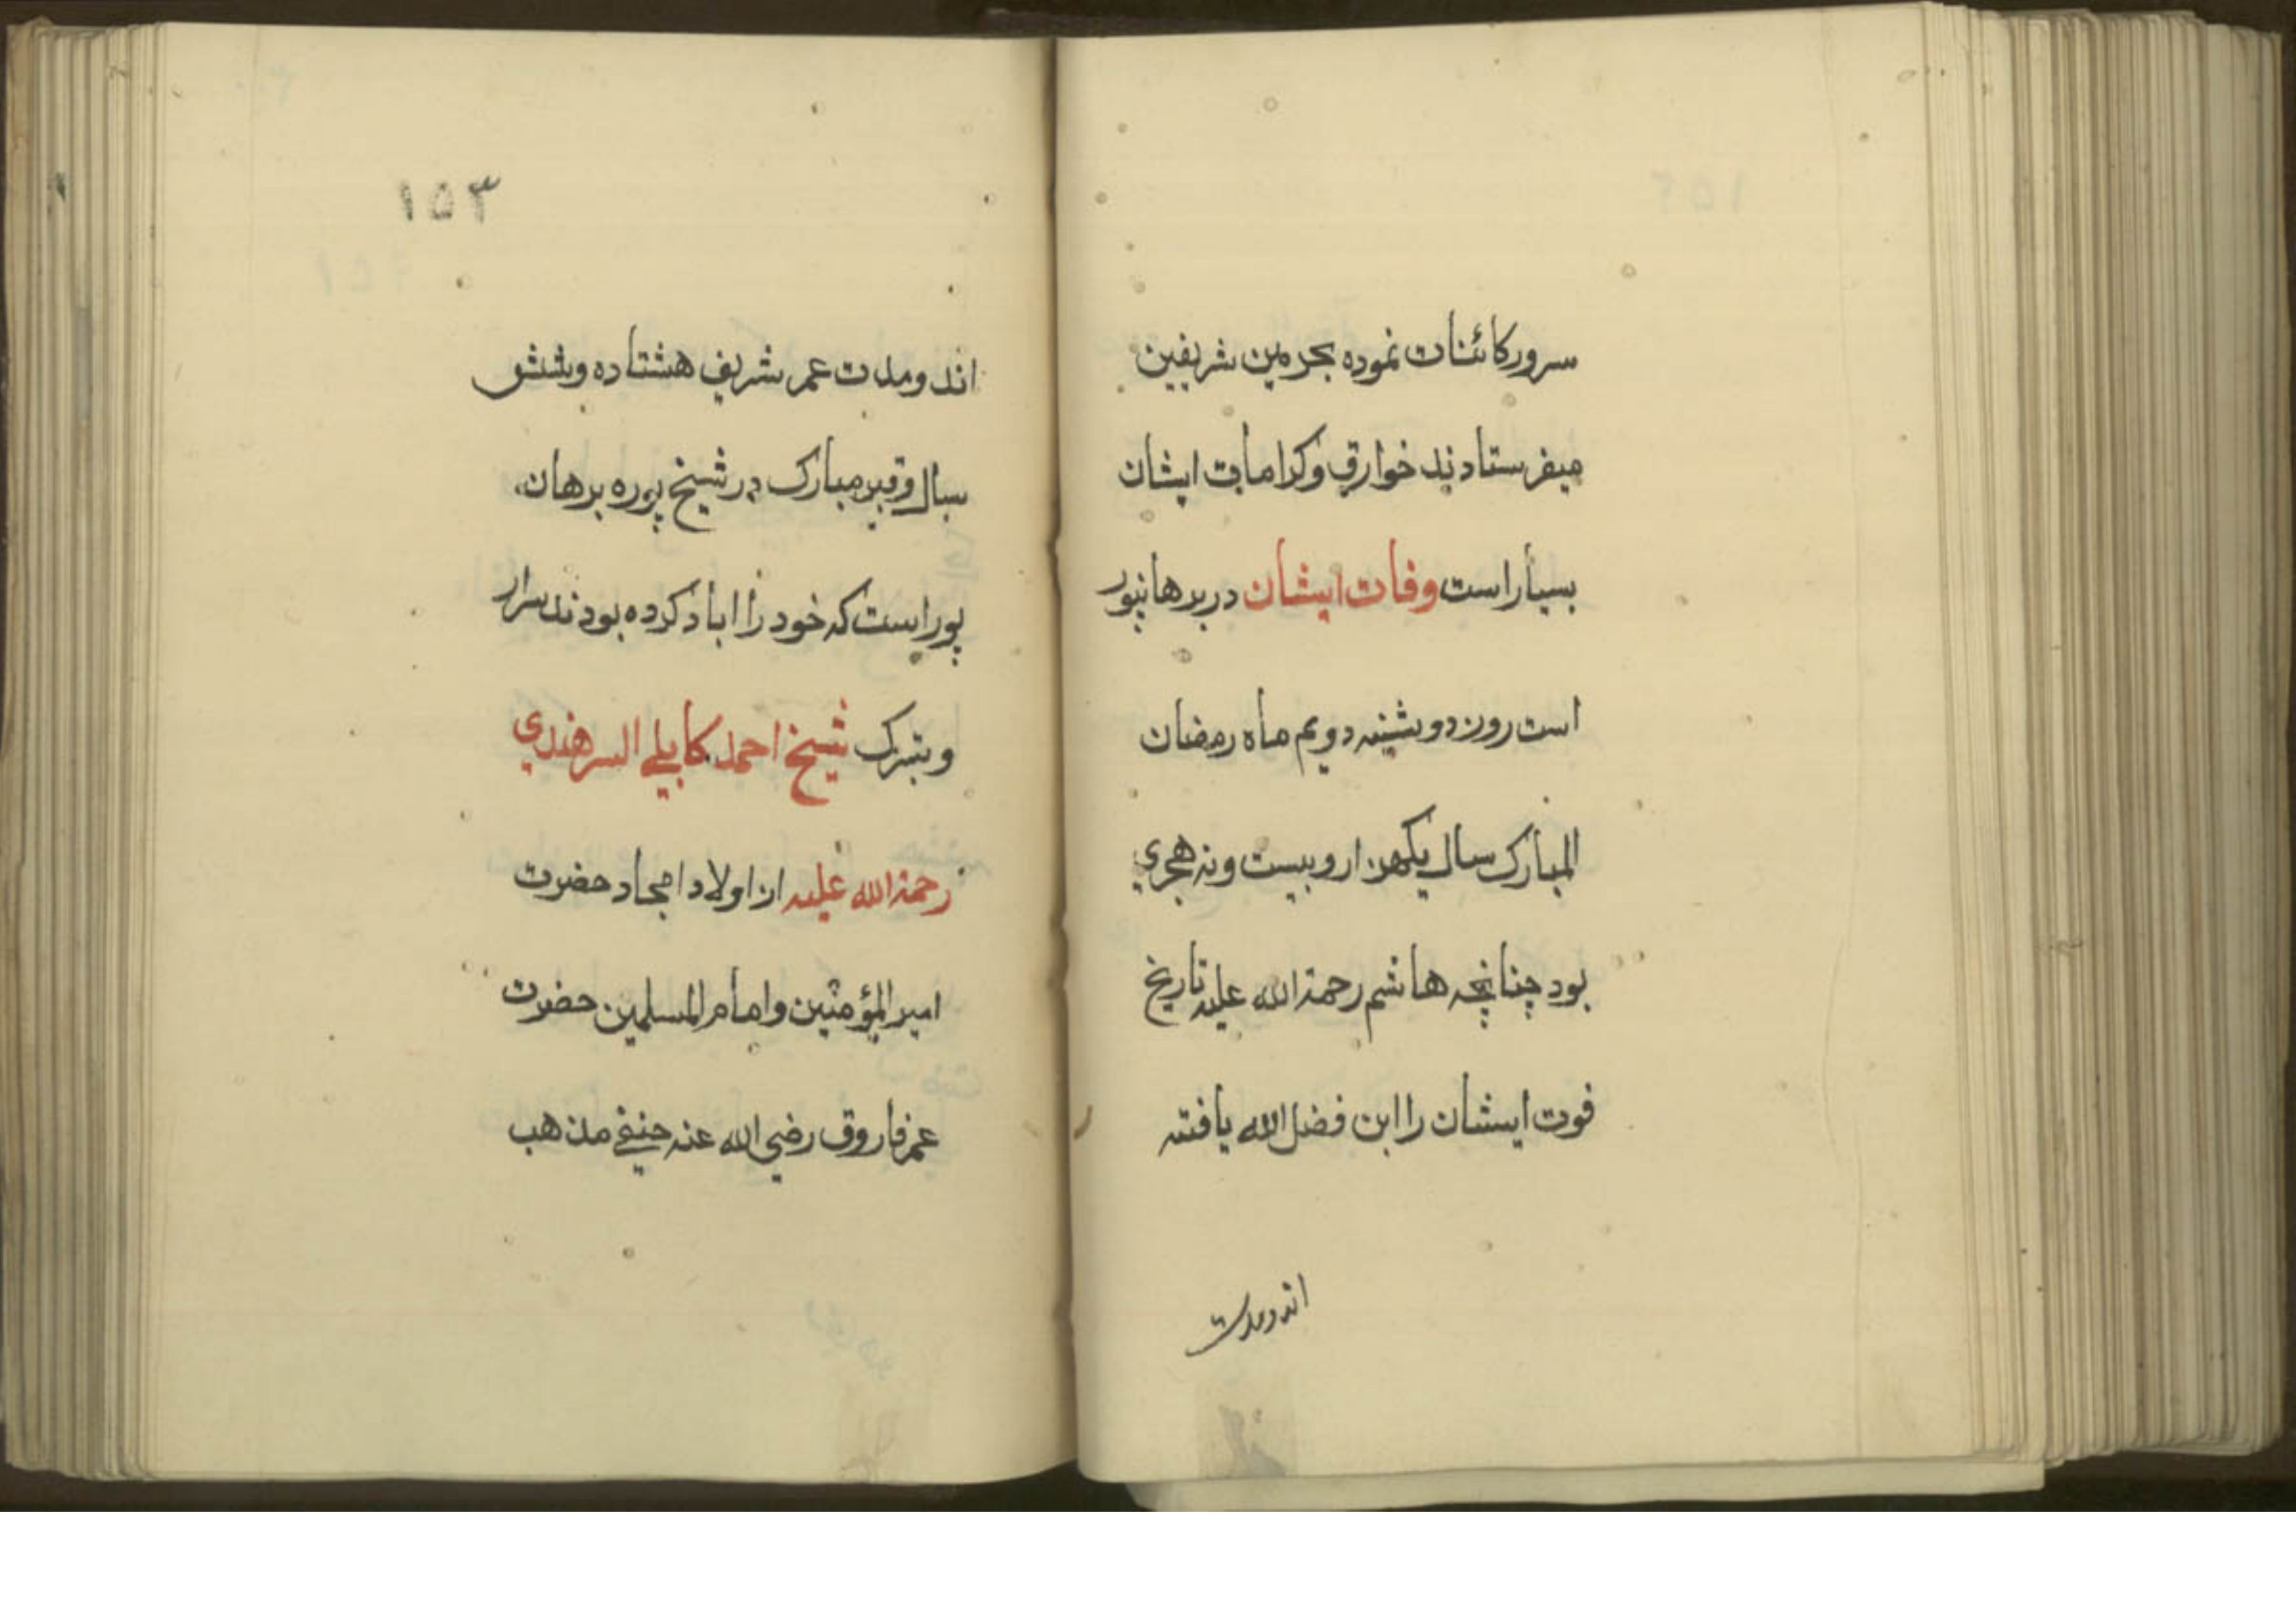 سرور کائنات نموده بحرمین شریفین
میفرستادند خوارق وکرامات ایشان
بسیار است وفات ایشان در برهانپور
است روز دوشنبه دویم ماه رمضان
المبارک سال یکهزار وبیست ونه هجری
بود چنانچه هاشم رحمة الله علیه تاریخ
فوت ایشان را ابن فضل الله یافته
اند ومدت
۱۵۳
اند ومدت عمر شریف هشتاده وشش
سال وقبر مبارک در شیخ پوره برهان
پور است که خود را اباد کرده بودند سزار
ویتبرک شیخ احمد کابلی السرهندی
رحمة الله علیه از اولاد امجاد حضرت
امیر المؤمنین وامام المسلمین حضرت
عمر فاروق رضی الله عنه حنفی مذهب